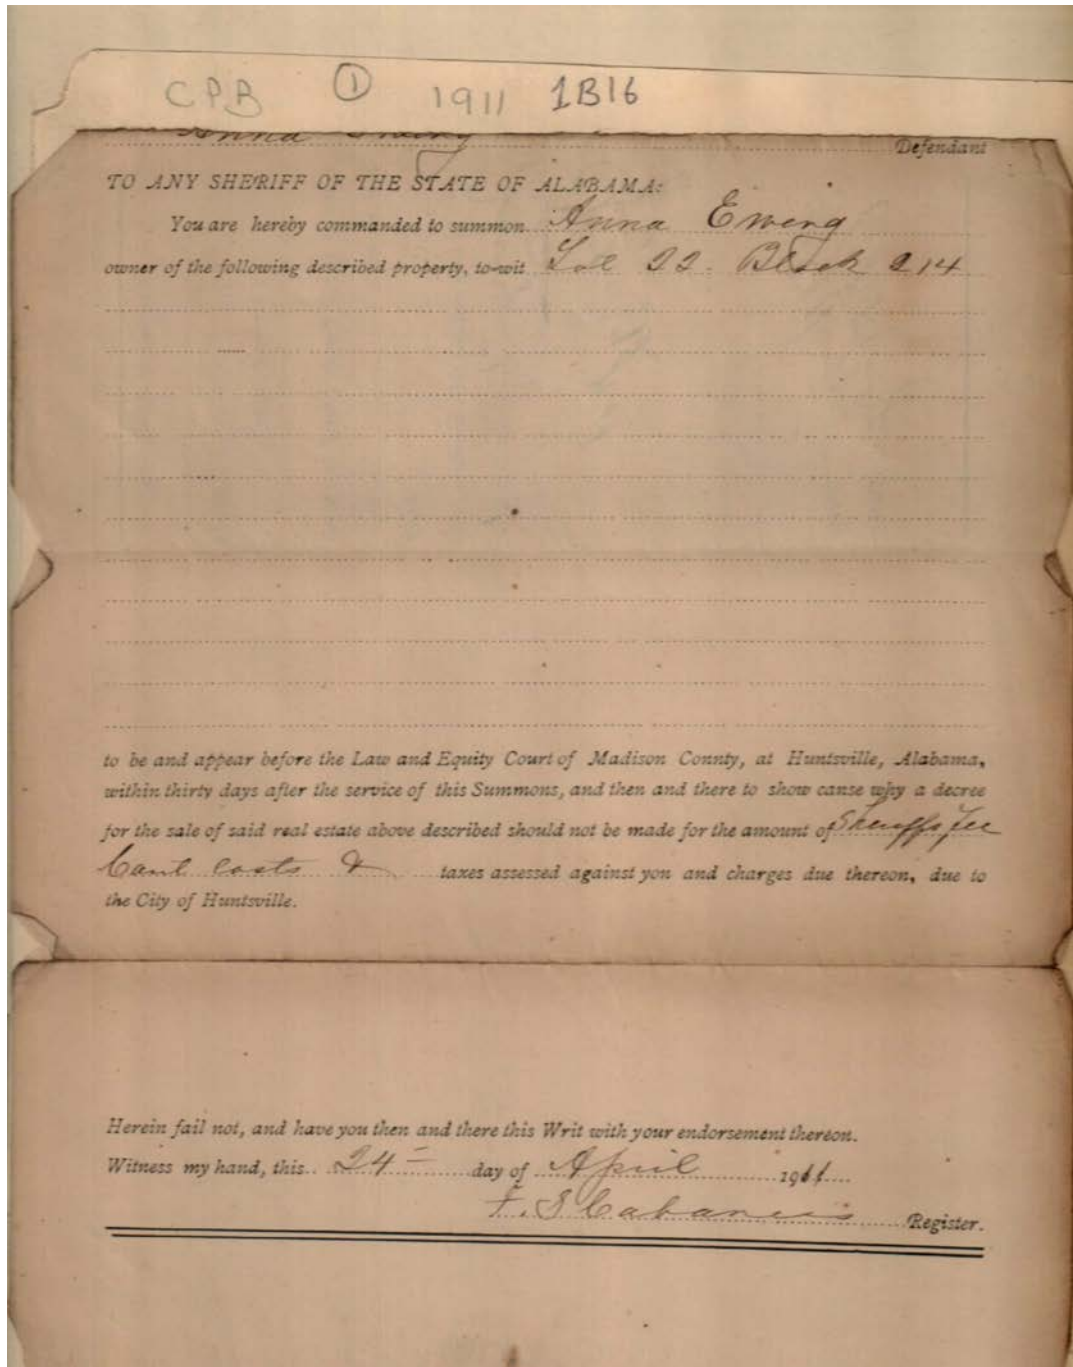 CPB ① 1911 1B16
Anna Ewing Defendant
TO ANY SHERIFF OF THE STATE OF ALABAMA:
You are hereby commanded to summon Anna Ewing
owner of the following described property, to-wit Lot 22. Block 214
to be and appear before the Law and Equity Court of Madison County, at Huntsville, Alabama,
within thirty days after the service of this Summons, and then and there to show cause why a decree
for the sale of said real estate above described should not be made for the amount of Sheriffs fee
Court costs & taxes assessed against you and charges due thereon, due to
the City of Huntsville.
Herein fail not, and have you then and there this Writ with your endorsement thereon.
Witness my hand, this 24 day of April 1911
F. S Cabaniss Register.